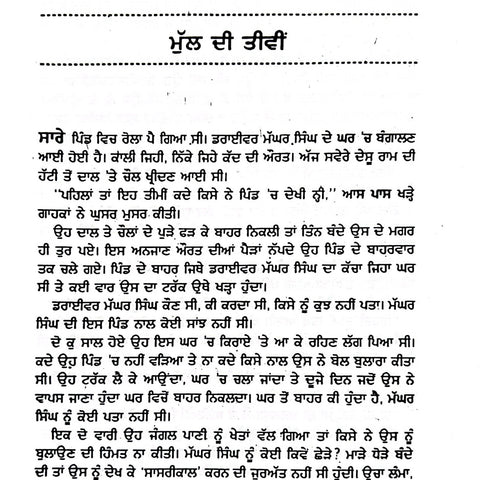 ਮੁੱਲ ਦੀ ਤੀਵੀਂ
ਸਾਰੇ ਪਿੰਡ ਵਿਚ ਰੋਲਾ ਪੈ ਗਿਆ ਸੀ। ਡਰਾਈਵਰ ਮੱਘਰ ਸਿੰਘ ਦੇ ਘਰ 'ਚ ਬੰਗਾਲਣ
ਆਈ ਹੋਈ ਹੈ। ਕਾਲੀ ਜਿਹੀ, ਨਿੱਕੇ ਜਿਹੇ ਕੱਦ ਦੀ ਔਰਤ। ਅੱਜ ਸਵੇਰੇ ਦੇਸੂ ਰਾਮ ਦੀ
ਹੱਟੀ ਤੋਂ ਦਾਲ 'ਤੇ ਚੌਲ ਖ੍ਰੀਦਣ ਆਈ ਸੀ।
"ਪਹਿਲਾਂ ਤਾਂ ਇਹ ਤੀਮੀਂ ਕਦੇ ਕਿਸੇ ਨੇ ਪਿੰਡ 'ਚ ਦੇਖੀ ਨ੍ਹੀ," ਆਸ ਪਾਸ ਖੜ੍ਹੇ
ਗਾਹਕਾਂ ਨੇ ਘੁਸਰ ਮੁਸਰ ਕੀਤੀ।
ਉਹ ਦਾਲ ਤੇ ਚੌਲਾਂ ਦੇ ਪੁੜੇ ਫੜ ਕੇ ਬਾਹਰ ਨਿਕਲੀ ਤਾਂ ਤਿੰਨ ਬੰਦੇ ਉਸ ਦੇ ਮਗਰ
ਹੀ ਤੁਰ ਪਏ। ਇਸ ਅਨਜਾਣ ਔਰਤ ਦੀਆਂ ਪੈੜਾਂ ਨੱਪਦੇ ਉਹ ਪਿੰਡ ਦੇ ਬਾਹਰਵਾਰ
ਤਕ ਚਲੇ ਗਏ। ਪਿੰਡ ਦੇ ਬਾਹਰ ਜਿਥੇ ਡਰਾਈਵਰ ਮੱਘਰ ਸਿੰਘ ਦਾ ਕੱਚਾ ਜਿਹਾ ਘਰ
ਸੀ ਤੇ ਕਈ ਵਾਰ ਉਸ ਦਾ ਟਰੱਕ ਉਥੇ ਖੜ੍ਹਾ ਹੁੰਦਾ।
ਡਰਾਈਵਰ ਮੱਘਰ ਸਿੰਘ ਕੌਣ ਸੀ, ਕੀ ਕਰਦਾ ਸੀ, ਕਿਸੇ ਨੂੰ ਕੁਝ ਨਹੀਂ ਪਤਾ। ਮੱਘਰ
ਸਿੰਘ ਦੀ ਇਸ ਪਿੰਡ ਨਾਲ ਕੋਈ ਸਾਂਝ ਨਹੀਂ ਸੀ।
ਦੋ ਕੁ ਸਾਲ ਹੋਏ ਉਹ ਇਸ ਘਰ 'ਚ ਕਿਰਾਏ 'ਤੇ ਆ ਕੇ ਰਹਿਣ ਲੱਗ ਪਿਆ ਸੀ।
ਕਦੇ ਉਹ ਪਿੰਡ 'ਚ ਨਹੀਂ ਵੜਿਆ ਤੇ ਨਾ ਕਦੇ ਕਿਸੇ ਨਾਲ ਉਸ ਨੇ ਬੋਲ ਬੁਲਾਰਾ ਕੀਤਾ
ਸੀ। ਉਹ ਟਰੱਕ ਲੈ ਕੇ ਆਉਂਦਾ, ਘਰ 'ਚ ਚਲਾ ਜਾਂਦਾ ਤੇ ਦੂਜੇ ਦਿਨ ਜਦੋਂ ਉਸ ਨੇ
ਵਾਪਸ ਜਾਣਾ ਹੁੰਦਾ ਘਰ ਵਿਚੋਂ ਬਾਹਰ ਨਿਕਲਦਾ। ਘਰ ਤੋਂ ਬਾਹਰ ਕੀ ਹੁੰਦਾ ਹੈ, ਮੱਘਰ
ਸਿੰਘ ਨੂੰ ਕੋਈ ਪਤਾ ਨਹੀਂ ਸੀ।
ਇਕ ਦੋ ਵਾਰੀ ਉਹ ਜੰਗਲ ਪਾਣੀ ਨੂੰ ਖੇਤਾਂ ਵੱਲ ਗਿਆ ਤਾਂ ਕਿਸੇ ਨੇ ਉਸ ਨੂੰ
ਬੁਲਾਉਣ ਦੀ ਹਿੰਮਤ ਨਾ ਕੀਤੀ। ਮੱਘਰ ਸਿੰਘ ਨੂੰ ਕੋਈ ਕਿਵੇਂ ਛੇੜੇ? ਮਾੜੇ ਧੋੜੇ ਬੰਦੇ
ਦੀ ਤਾਂ ਉਸ ਨੂੰ ਦੇਖ ਕੇ 'ਸਾਸਰੀਕਾਲ' ਕਰਨ ਦੀ ਜੁਰਅੱਤ ਨਹੀਂ ਸੀ ਹੁੰਦੀ। ਉਚਾ ਲੰਮਾ,